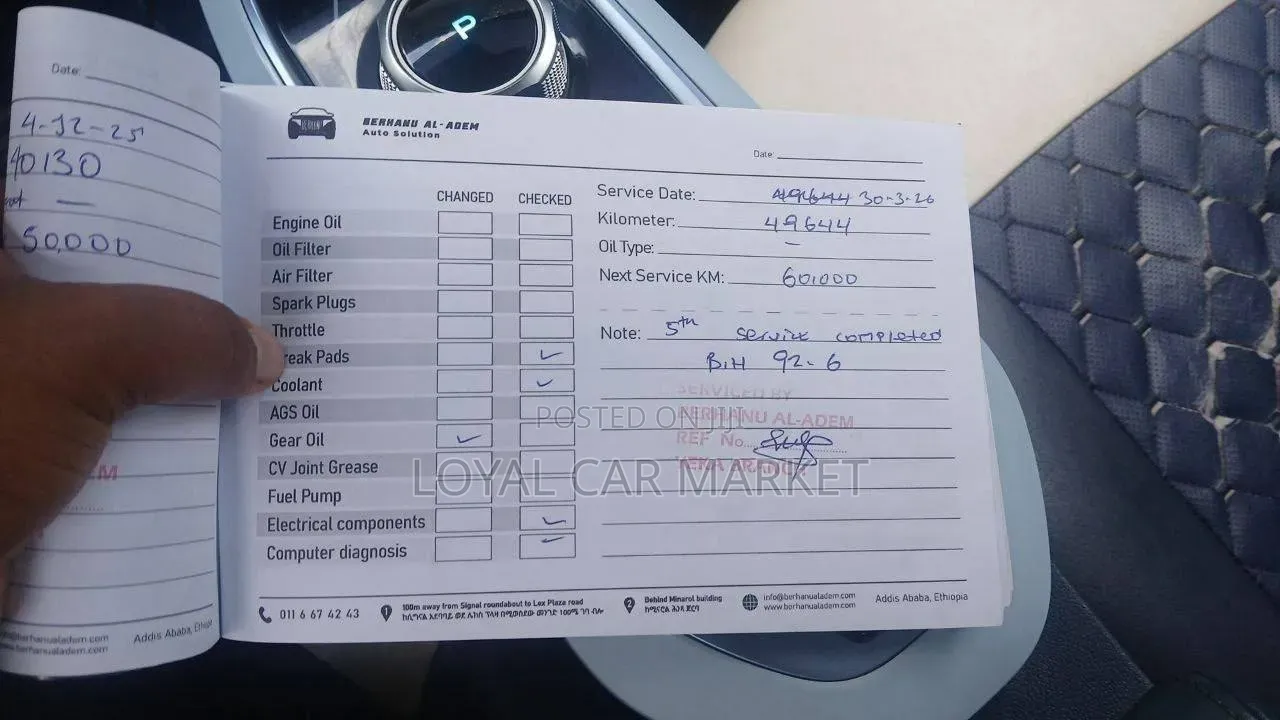 P
Date:
4-12-25
40130
50,000
BERHANU AL-ADEM
Auto Solution
Date:
CHANGED CHECKED
Engine Oil
Oil Filter
Air Filter
Spark Plugs
Throttle
reak Pads
Coolant
AGS Oil
Gear Oil
CV Joint Grease
Fuel Pump
Electrical components
Computer diagnosis
Service Date: 49644 30-3-26
Kilometer: 49644
Oil Type: –
Next Service KM: 60,000
Note: 5th service completed
B.H 92.6
SERVICED BY
BERHANU AL-ADEM
REF No.
YEKA BRANCH
POSTED ON JIJI
LOYAL CAR MARKET
011 6 67 42 43
1
100m away from Signal roundabout to Lex Plaza road
2
Behind Minarol building
info@berhanualadem.com
www.berhanualadem.com
Addis Ababa, Ethiopia
berhanualadem.com
Addis Ababa, Ethiop